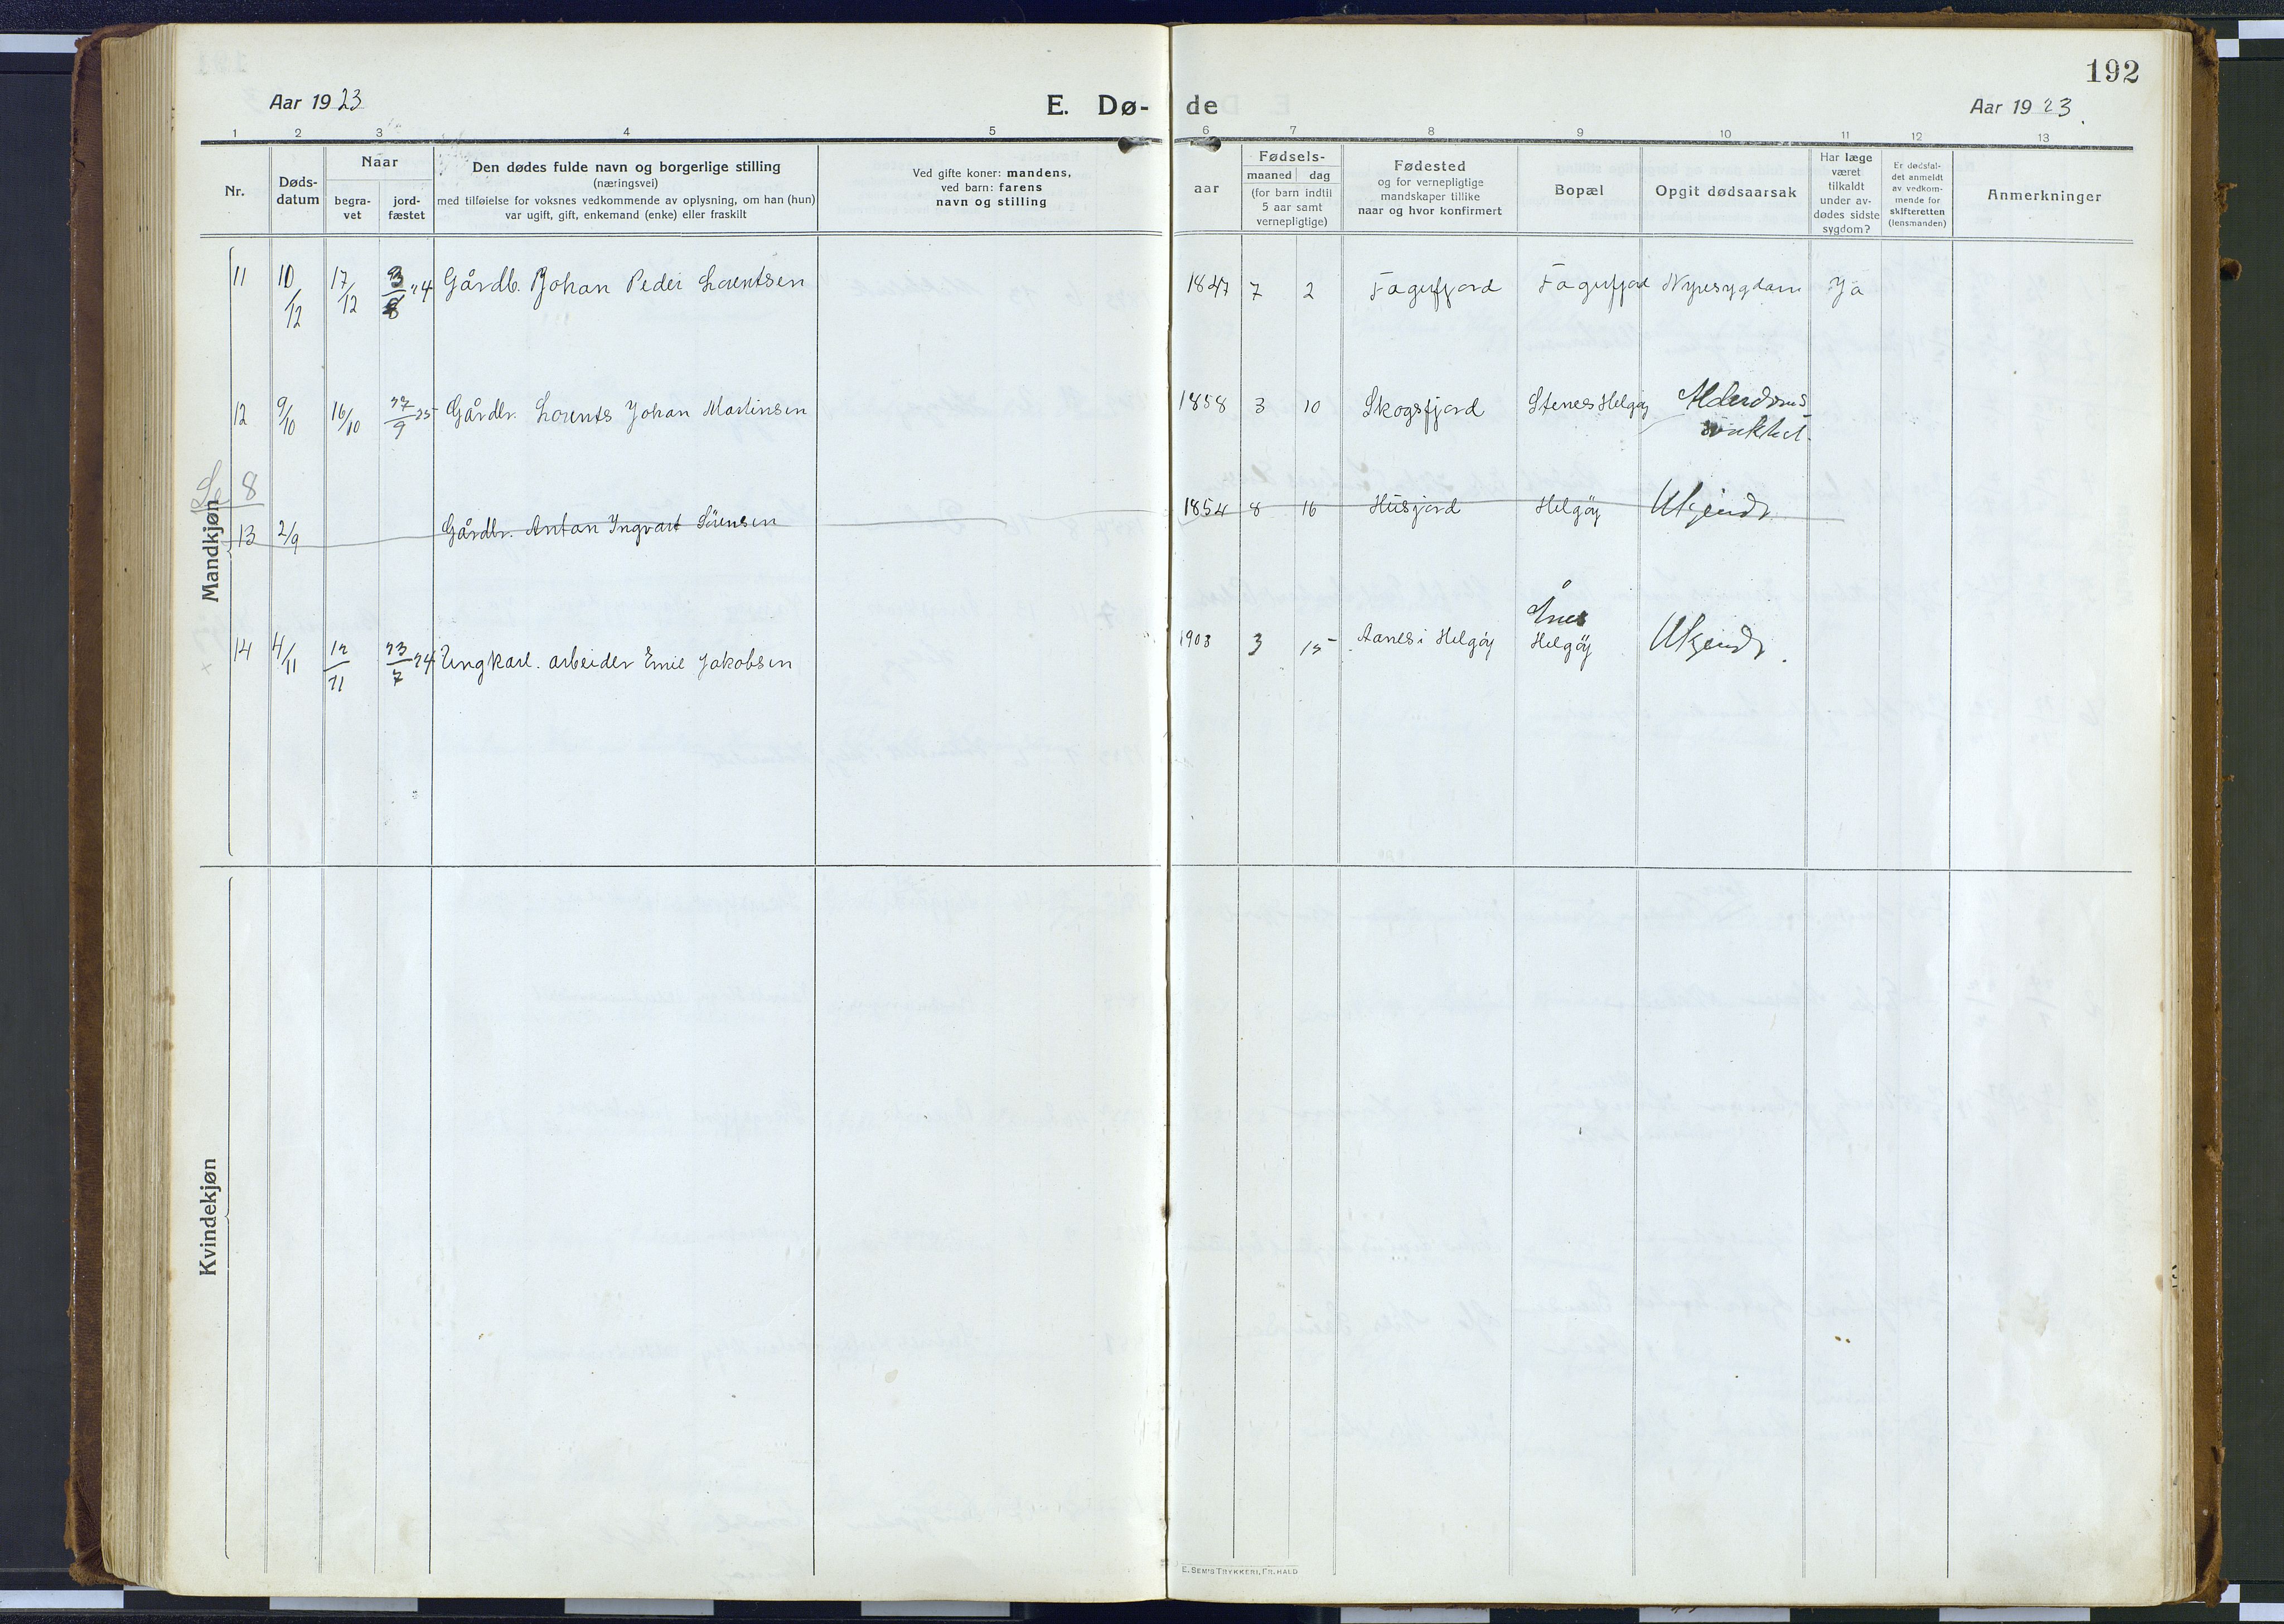 192
Aar 1923 E. Dø- de Aar 1923.
1 2 3 4 5 6 7 8 9 10 11 12 13
Nr.
Døds-
datum
Naar
begra-
vet
jord-
fæstet
Den dødes fulde navn og borgerlige stilling
(næringsvei)
med tilføielse for voksnes vedkommende av oplysning, om han (hun)
var ugift, gift, enkemand (enke) eller fraskilt
Ved gifte koner: mandens,
ved barn: farens
navn og stilling
Fødsels-
aar
maaned dag
(for barn indtil
5 aar samt
vernepligtige)
Fødested
og for vernepligtige
mandskaper tillike
naar og hvor konfirmert
Bopæl
Opgit dødsaarsak
Har læge
været
tilkaldt
under av-
dødes sidste
sygdom?
Er dødsfal-
det anmeldt
av vedkom-
mende for
skifteretten
(lensmanden)
Anmerkninger
Mandkjøn
11 10/12 17/12 3/8 24 Gårdb. Johan Peder Lorentsen 1847 7 2 Fagerfjord Fagerfjord Nyresygdom Ja
12 9/10 16/10 27/9 25 Gårdbr. Lorents Johan Martinsen 1858 3 10 Skogsfjord Stenes Helgöy Alderdoms
svakhet.
Se 8
13 2/9 Gårdbr. Anton Ingvart Sörensen 1854 8 16 Husjord Helgöy Ukjendt
14 4/11 12/11 23/7 24 Ungkarl. arbeider Emil Jakobsen 1903 3 15 Aanes i Helgöy Ånes
Helgöy Ukjendt.
Kvindekjøn
E. SEM'S TRYKKERI, FR. HALD